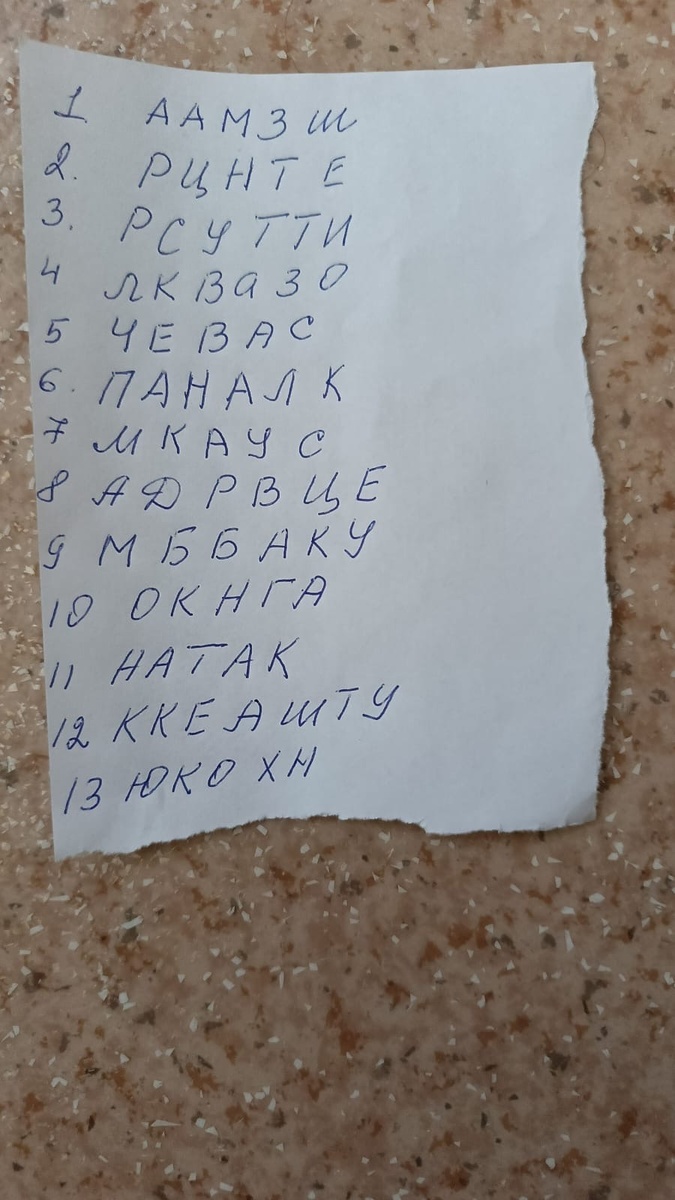 1 ААМЗШ
2. РЦНТЕ
3. РСУТТИ
4 ЛКВАЗО
5 ЧЕВАС
6. ПАНАЛК
7 МКАУС
8 АДРВЦЕ
9 МББАКУ
10 ОКНГА
11 НАТАК
12 ККЕАШТУ
13 ЮКОХН